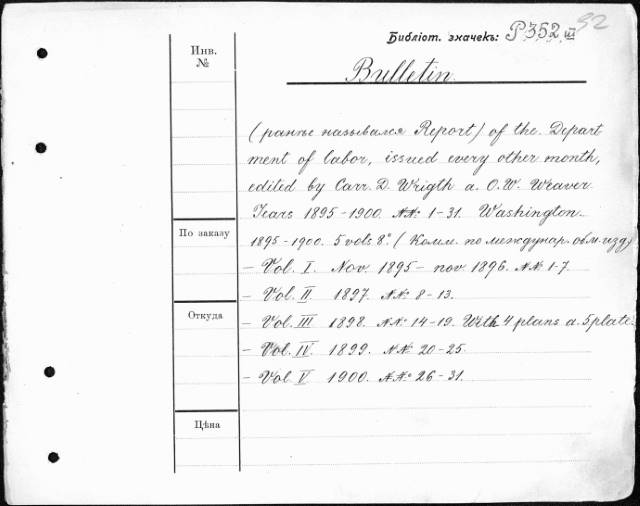 Библіот. значекъ: P352 III 92
Инв.
№
Bulletin.
(раньше назывался Report) of the Depart
ment of labor, issued every other month,
edited by Carr. D. Wrigth a. O.W. Weaver
Years 1895-1900. №№ 1-31. Washington.
По заказу
1895-1900. 5 vols 8°. (Комм. по междунар. обм. изд)
- Vol. I. Nov. 1895 - nov. 1896. №№ 1-7.
- Vol. II. 1897. №№ 8-13.
Откуда
- Vol. III 1898. №№ 14-19. With 4 plans a. 5 plates
- Vol. IV. 1899. №№ 20-25.
- Vol V 1900. №№ 26-31.
Цѣна